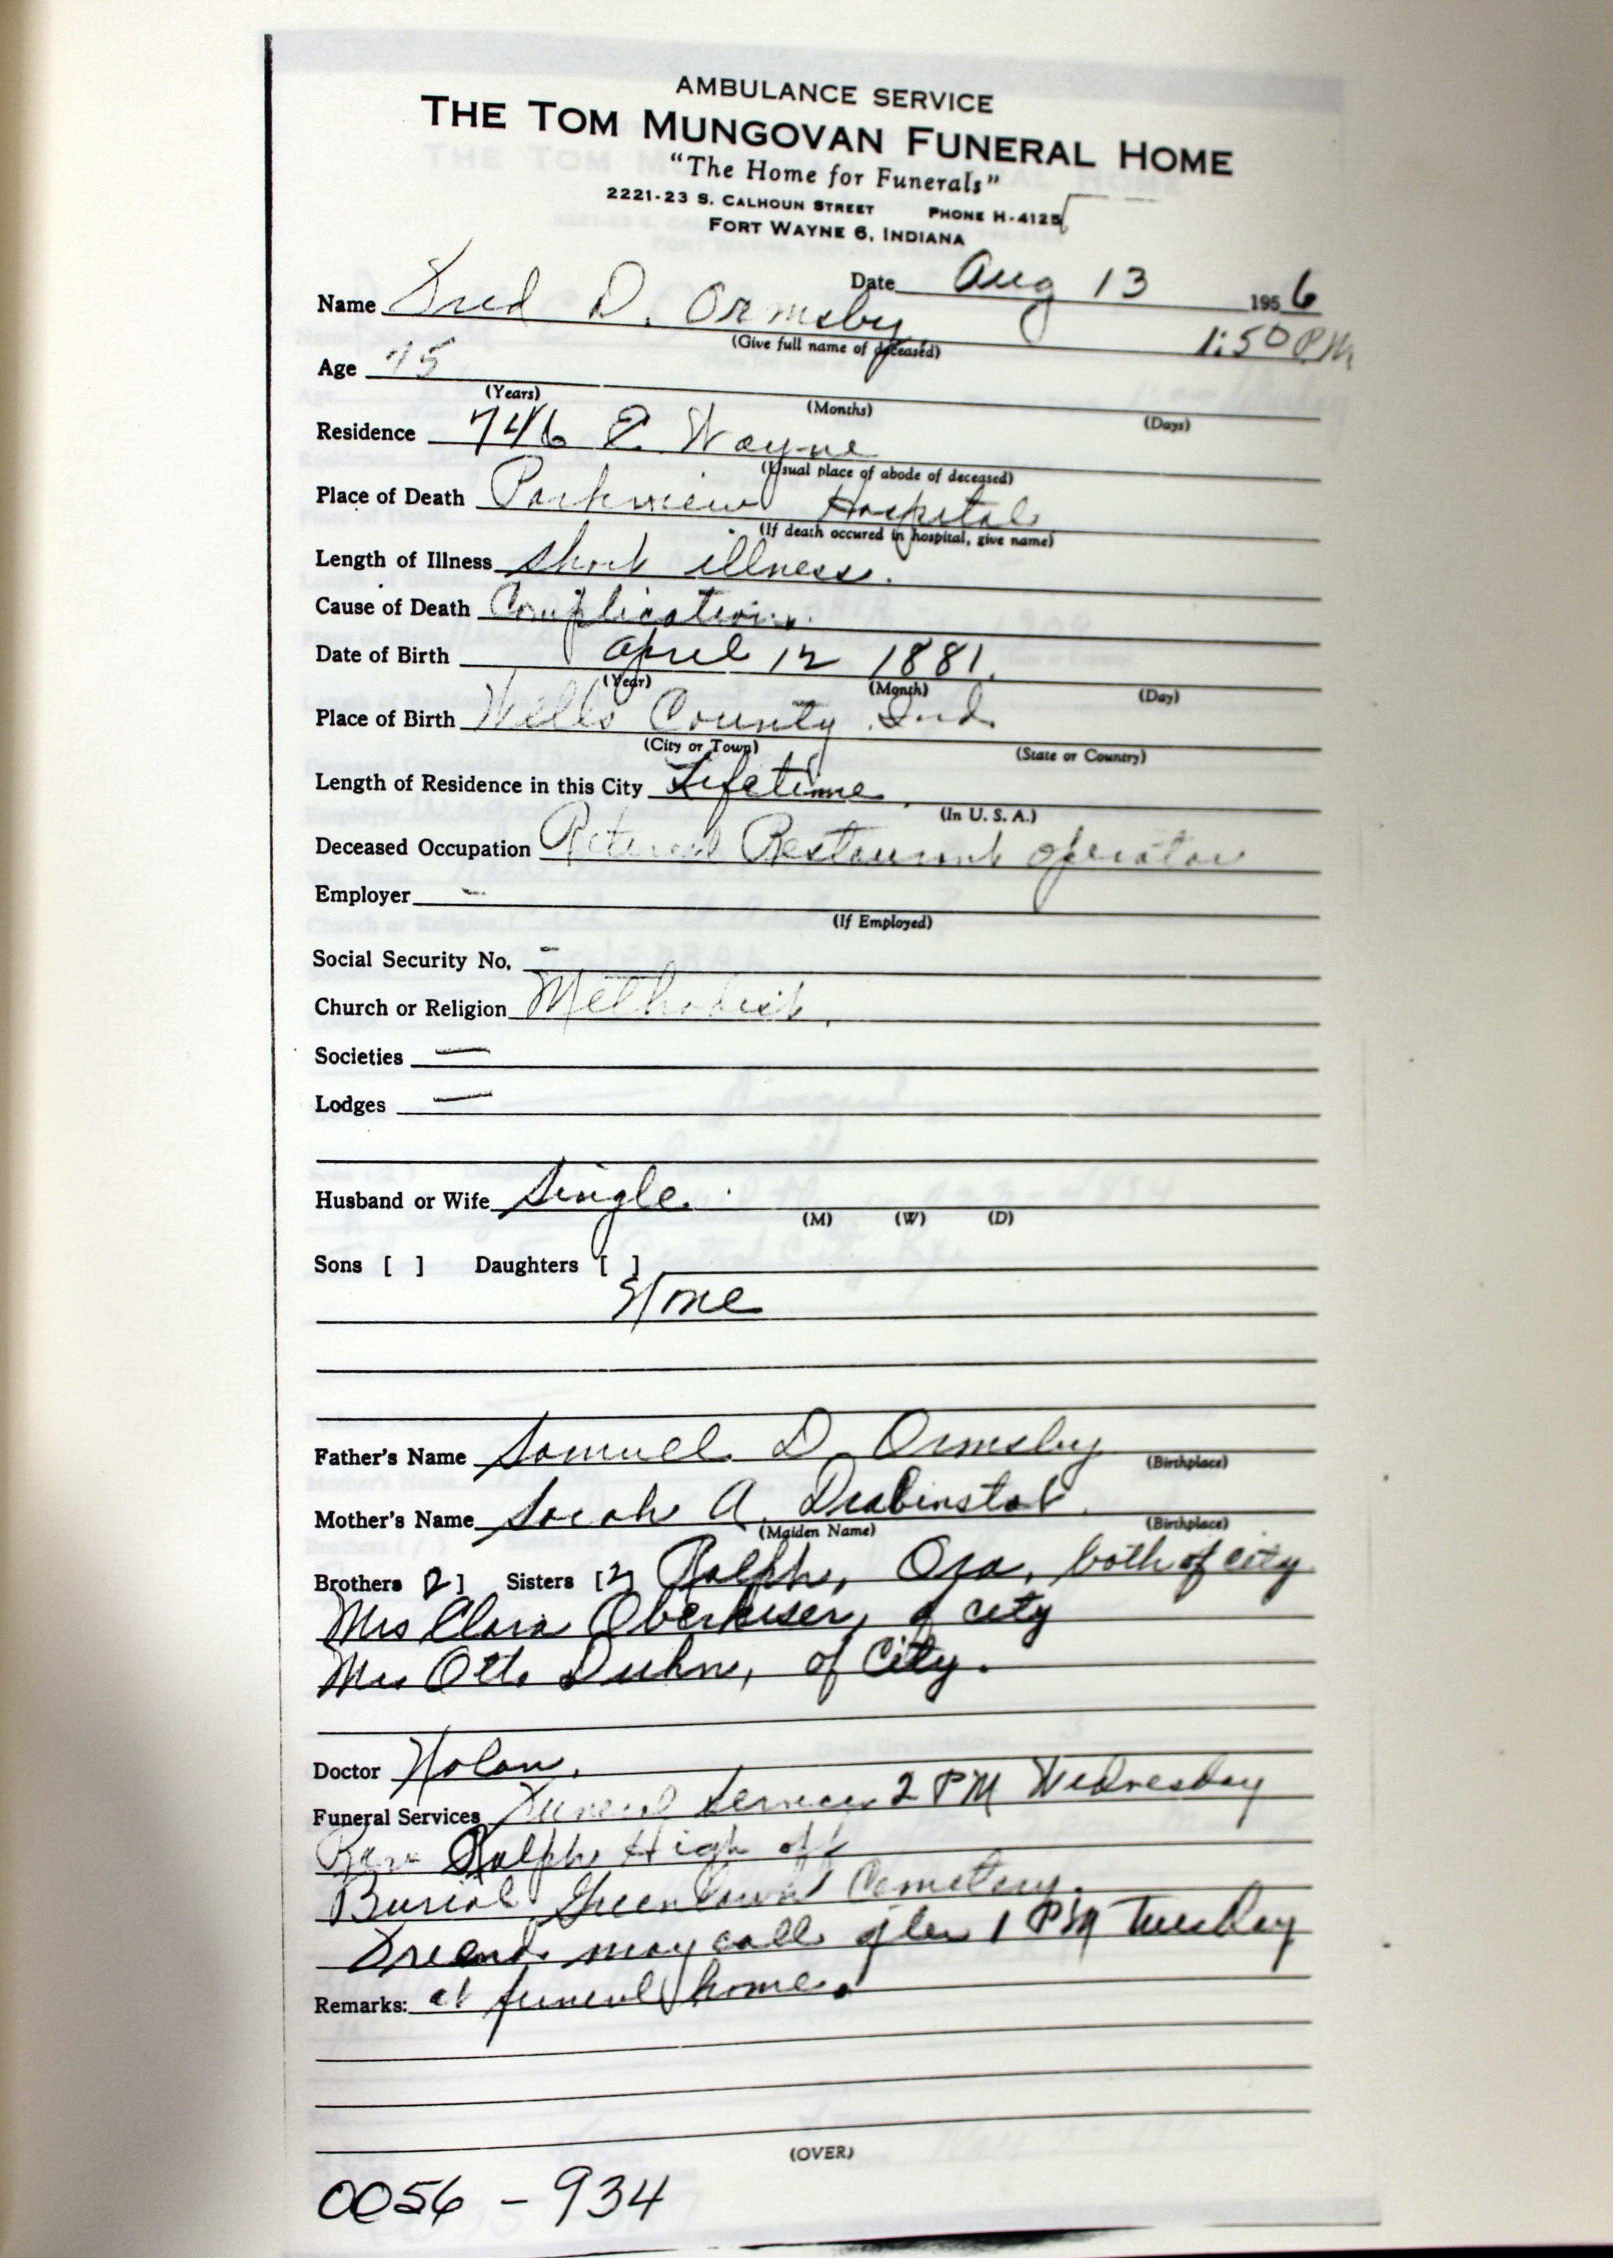 AMBULANCE SERVICE
THE TOM MUNGOVAN FUNERAL HOME
"The Home for Funerals"
2221-23 S. CALHOUN STREET PHONE H-4125
FORT WAYNE 6, INDIANA
Date Aug 13 1956
Name Fred D. Ormsby 1:50 PM
(Give full name of deceased)
Age 75
(Years) (Months) (Days)
Residence 746 E. Wayne
(Usual place of abode of deceased)
Place of Death Parkview Hospital
(If death occured in hospital, give name)
Length of Illness Short illness.
Cause of Death Complications.
Date of Birth April 12 1881.
(Year) (Month) (Day)
Place of Birth Wells County Ind.
(City or Town) (State or Country)
Length of Residence in this City Lifetime.
(In U. S. A.)
Deceased Occupation Retired Restaurant operator
Employer -
(If Employed)
Social Security No. -
Church or Religion Methodist.
Societies —
Lodges —
Husband or Wife Single.
(M) (W) (D)
Sons [ ] Daughters [ ]
None
Father's Name Samuel D. Ormsby
(Birthplace)
Mother's Name Sarah A.
(Maiden Name) (Birthplace)
Brothers [2] Sisters [2] Ralph, Ora, both of city
Mrs Clara Oberkiser, of city
Mrs Otto Duhn, of City.
Doctor Nolan.
Funeral Services Funeral Services 2 PM Wednesday
Rev Ralph High off
Burial Greenlawn Cemetery.
Friends may call after 1 PM Tuesday
Remarks: at funeral home.
(OVER)
0056 - 934